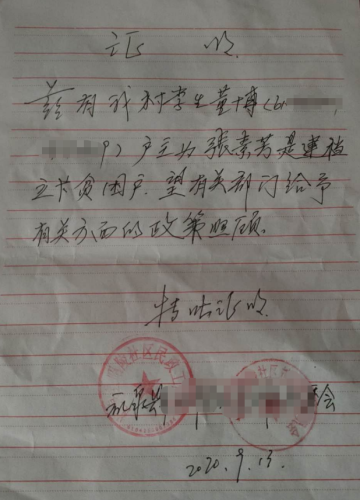 证 明
兹有我村李生董博(61
9)户主为張素芳是建档
立卡贫困户.望有关部门给予
有关方面的政策照顾.
特此证明.
礼泉县 会
2020.9.13